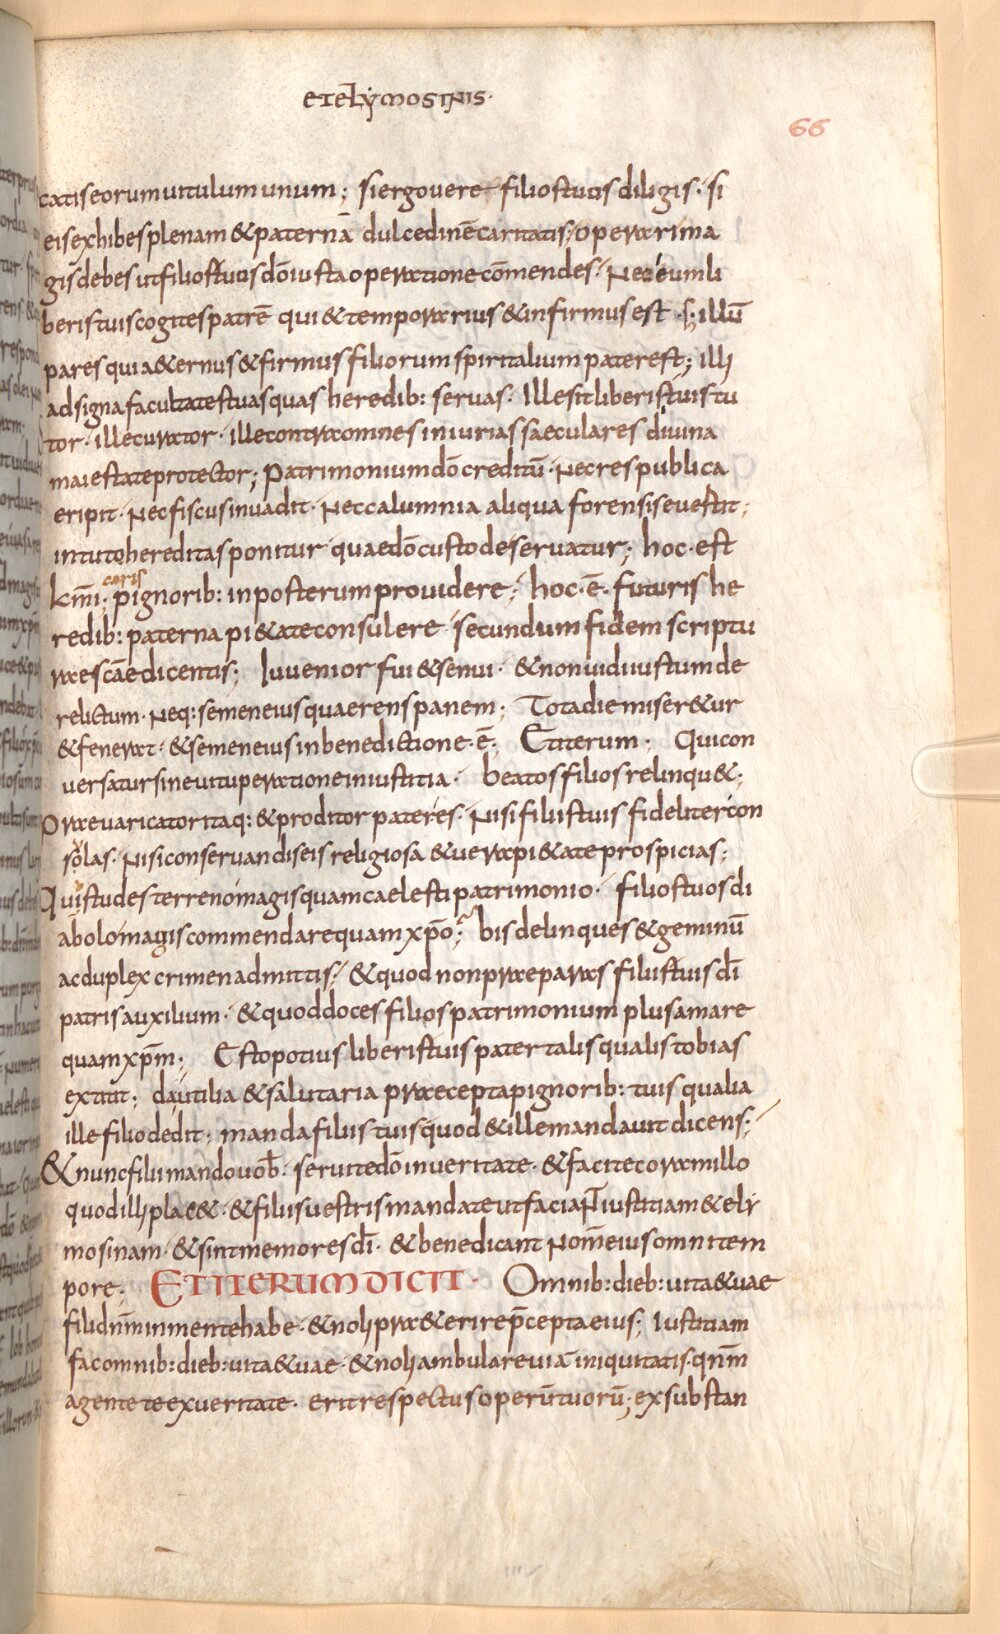 et elymosinis·
66
catis eorum uitulum unum; si ergo uere filios tuos diligis· si
eis exhibes plenam & paternā dulcedinē caritatis; operari ma
gis debes ut filios tuos dō iusta operatione cōmendes· Nec eum li
beris tuis cogites patrē qui & temporarius & infirmus est ; illū
pares qui a&ernus & firmus filiorum spiritalium pater est; illi
adsigna facultates tuas quas heredib: seruas· Ille sit liberis tuis tu
tor· ille curator· ille contra omnes iniurias saeculares diuina
maiestate protector; Patrimonium dō creditū· nec respublica
eripit· nec fiscus inuadit· nec calumnia aliqua forensis euestit;
in tuto hereditas ponitur quae dō custode seruatur; hoc· est
caris
k̄mi· pignorib: in posterum prouidere; hoc·ē· futuris he
redib: paterna pi&ate consulere secundum fidem scriptu
rae scāe dicentis; Iuuenior fui & senui· & non uidi iustum de
relictum· neq: semen eius quaerens panem; Tota die miser&ur
& fenerat· & semen eius in benedictione·ē; Et iterum; Qui con
uersatur sine uituperatione in iustitia· beatos filios relinqu&;
Praeuaricator itaq: & proditor pater es· nisi filiis tuis fideliter con
solas· nisi conseruandis eis religiosa & uera pi&ate prospicias;
Qui studes terreno magis quam caelesti patrimonio· filios tuos di
abolo magis commendare quam xp̄o; bis delinques & geminū
ac duplex crimen admittis; & quod non praeparas filiis tuis dī
patris auxilium· & quod doces filios patrimonium plus amare
quam xp̄m; Esto potius liberis tuis pater talis qualis tobias
extitit; da utilia & salutaria praecepta pignorib: tuis qualia
ille filio dedit; manda filiis tuis quod & ille mandauit dicens;
& nunc filii mando uob̄· seruite dō in ueritate· & facite coram illo
quod illi plac&· & filiis uestris mandate ut faciant iustitiam & ely
mosinam· & sint memores dī· & benedicant nomē eius omni tem
pore; ET ITERUM DICIT· Omnib: dieb: uitae tuae
fili dn̄m in mente habe· & noli praeterire p̄cepta eius; Iustitiam
fac omnib: dieb: uitae tuae· & noli ambulare uiā iniquitatis· qn̄m
agente te ex ueritate· erit respectus operū tuorū; ex substan